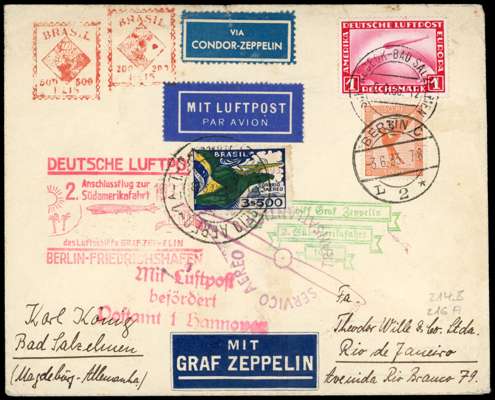 BRASIL
BRASIL
500 500
200 200
REIS
VIA
CONDOR-ZEPPELIN
DEUTSCHE LUFTPOST
AMERIKA
EUROPA
1 1
REICHSMARK
MIT LUFTPOST
PAR AVION
BERLIN C
2
BRASIL
3$500
DEUTSCHE LUFTPOS
2. Anschlussflug zur
Südamerikafahrt
des Luftschiffs GRAF ZEPPELIN
BERLIN-FRIEDRICHSHAFEN
Graf Zeppelin
2. Südamerikafahrt
SERVICO AEREO
Mit Luftpost
befördert
Postamt 1 Hannover
214.II
216A
Karl König
Bad Salzelmen
(Magdeburg-Allemanha)
Fa.
Theodor Wille & Co. Ltda.
Rio de Janeiro
Avenida Rio Branco 79.
MIT
GRAF ZEPPELIN